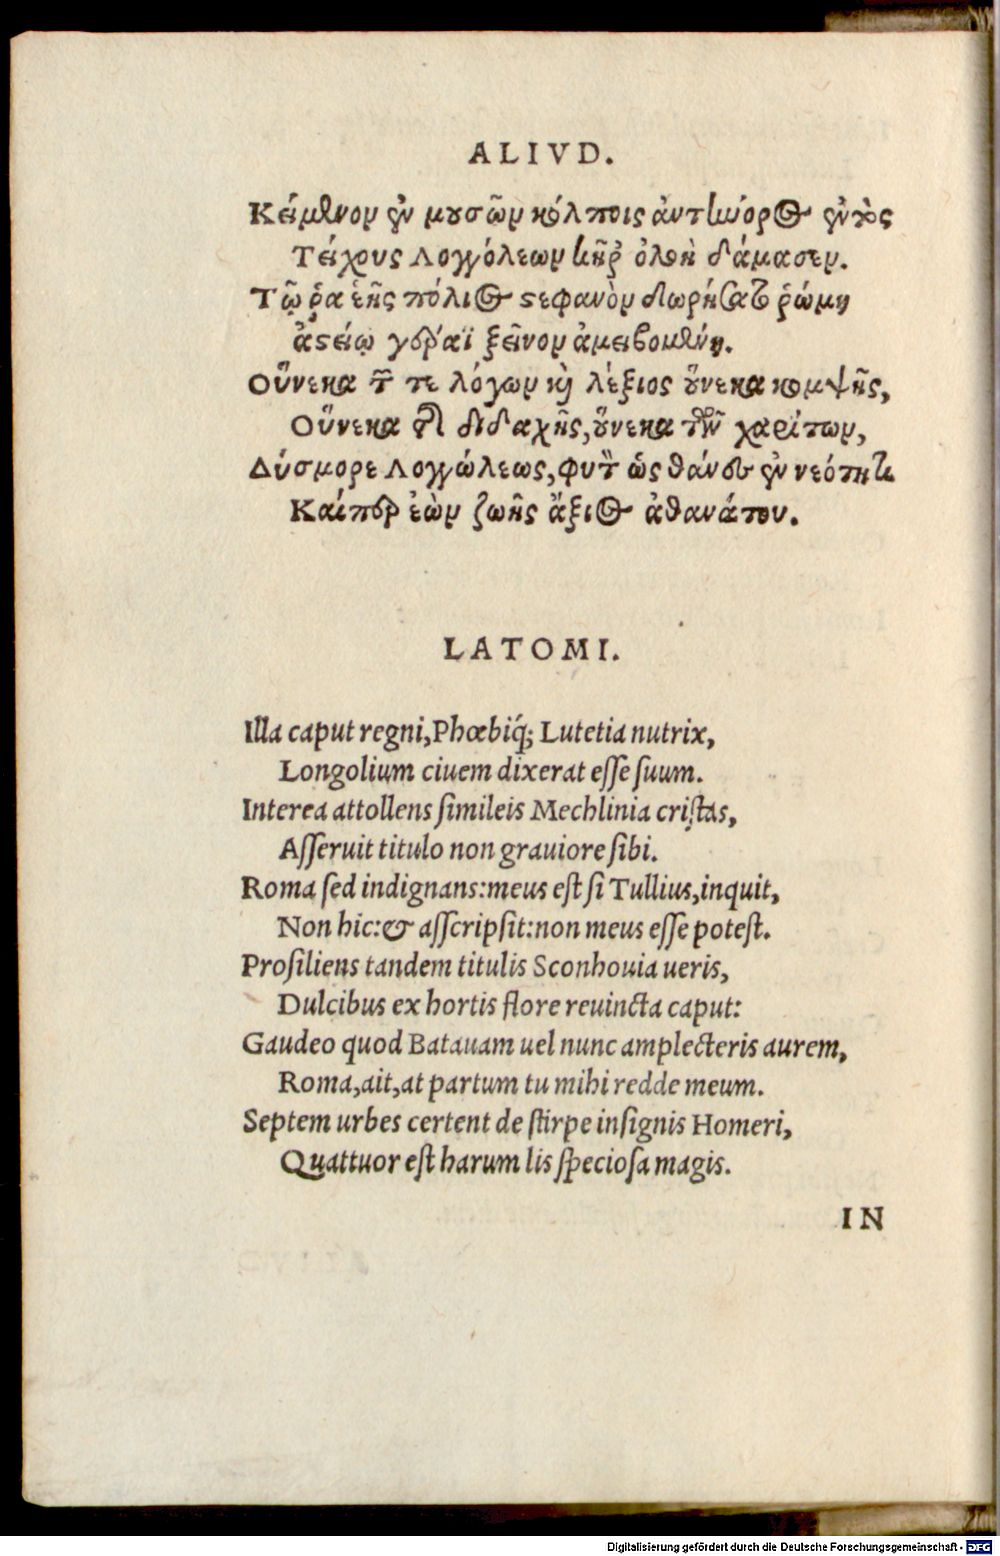 ALIVD.
Κείμενον ἐν μουσῶν κόλποις ἀντήνορος ἐντὸς
Τείχους Λογγόλεων κὴρ ὀλοὴ δάμασεν.
Τῷ ῥα ἑῆς πόλιος στεφανὸν δωρήσατο ῥώμη
ἀστείῳ γεραῖ ξεῖνον ἀμειβομένη.
Οὕνεκα τῶν τε λόγων καὶ λέξιος οὕνεκα κομψῆς,
Οὕνεκα διδαχῆς, οὕνεκα τῶν χαρίτων,
Δύσμορε Λογγώλεως, ὡς θάνες ἐν νεότητι
Καίπερ ἐὼν ζωῆς ἄξιος ἀθανάτου.
LATOMI.
Illa caput regni, Phœbiq́; Lutetia nutrix,
Longolium ciuem dixerat eſſe ſuum.
Interea attollens ſimileis Mechlinia criſtas,
Aſſeruit titulo non grauiore ſibi.
Roma ſed indignans: meus eſt ſi Tullius, inquit,
Non hic: & aſſcripſit: non meus eſſe poteſt.
Proſiliens tandem titulis Sconhouia ueris,
Dulcibus ex hortis flore reuincta caput:
Gaudeo quod Batauam uel nunc amplecteris aurem,
Roma, ait, at partum tu mihi redde meum.
Septem urbes certent de ſtirpe inſignis Homeri,
Quattuor eſt harum lis ſpecioſa magis.
IN
Digitalisierung gefördert durch die Deutsche Forschungsgemeinschaft - DFG